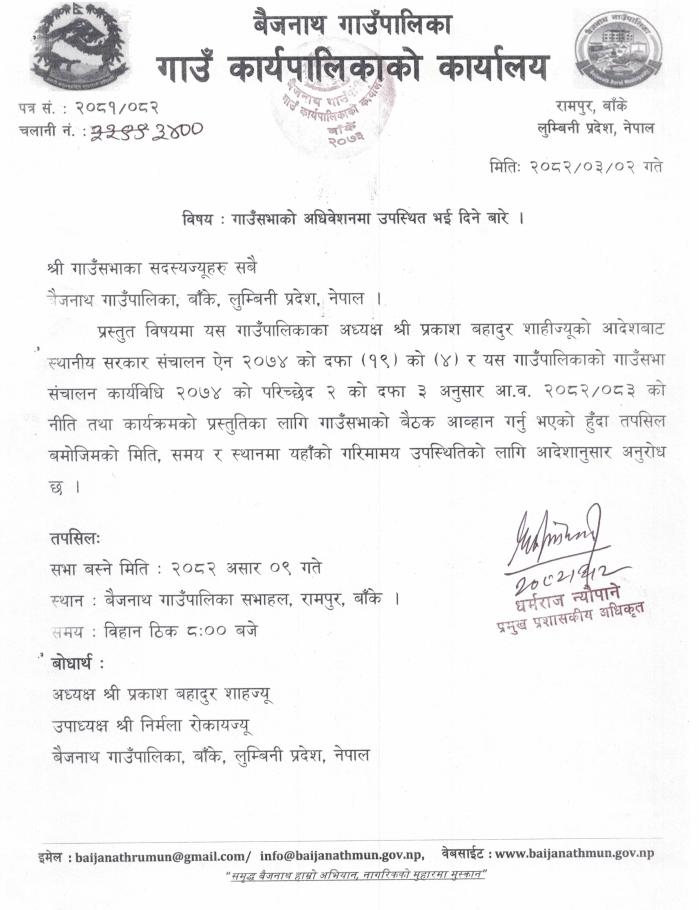 बैजनाथ गाउँपालिका
गाउँ कार्यपालिकाको कार्यालय
पत्र सं. : २०८१/०८२
रामपुर, बाँके
चलानी नं. : ३४००
लुम्बिनी प्रदेश, नेपाल
बैजनाथ गाउँपालिका
गाउँ कार्यपालिकाको कार्यालय
बाँके
२०७३
मितिः २०८२/०३/०२ गते
विषय : गाउँसभाको अधिवेशनमा उपस्थित भई दिने बारे ।
श्री गाउँसभाका सदस्यज्यूहरु सबै
बैजनाथ गाउँपालिका, बाँके, लुम्बिनी प्रदेश, नेपाल ।
प्रस्तुत विषयमा यस गाउँपालिकाका अध्यक्ष श्री प्रकाश बहादुर शाहीज्यूको आदेशबाट
स्थानीय सरकार संचालन ऐन २०७४ को दफा (१९) को (४) र यस गाउँपालिकाको गाउँसभा
संचालन कार्यविधि २०७४ को परिच्छेद २ को दफा ३ अनुसार आ.व. २०८२/०८३ को
नीति तथा कार्यक्रमको प्रस्तुतिका लागि गाउँसभाको बैठक आव्हान गर्नु भएको हुँदा तपसिल
बमोजिमको मिति, समय र स्थानमा यहाँको गरिमामय उपस्थितिको लागि आदेशानुसार अनुरोध
छ ।
तपसिलः
सभा बस्ने मिति : २०८२ असार ०९ गते
स्थान : बैजनाथ गाउँपालिका सभाहल, रामपुर, बाँके ।
समय : विहान ठिक ८:०० बजे
धर्मराज न्यौपाने
प्रमुख प्रशासकीय अधिकृत
बोधार्थ :
अध्यक्ष श्री प्रकाश बहादुर शाहज्यू
उपाध्यक्ष श्री निर्मला रोकायज्यू
बैजनाथ गाउँपालिका, बाँके, लुम्बिनी प्रदेश, नेपाल
इमेल : baijanathrumun@gmail.com/ info@baijanathmun.gov.np, वेबसाईट : www.baijanathmun.gov.np
"समृद्ध बैजनाथ हाम्रो अभियान, नागरिकको मुहारमा मुस्कान"